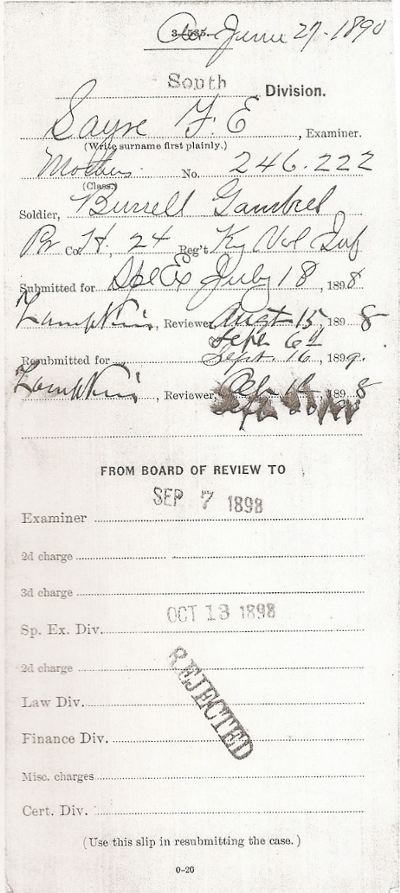 June 27-1890
3-535.
South Division.
Sayre F. E , Examiner.
(Write surname first plainly.)
Mothers No. 246.222
(Class.)
Soldier, Burrell Gambrel
Pr Co. H, 24 Reg't Ky Vol Inf
Submitted for Spl Ex July 18, 1898
Lampkin, Reviewer, Augt 15, 1898
Sept 6th
Resubmitted for Sept. 16, 189
Lampkin, Reviewer, 1898
FROM BOARD OF REVIEW TO
SEP 7 1898
Examiner
2d charge
3d charge
OCT 13 1898
Sp. Ex. Div.
2d charge
REJECTED
Law Div.
Finance Div.
Misc. charges
Cert. Div.
(Use this slip in resubmitting the case.)
0-20